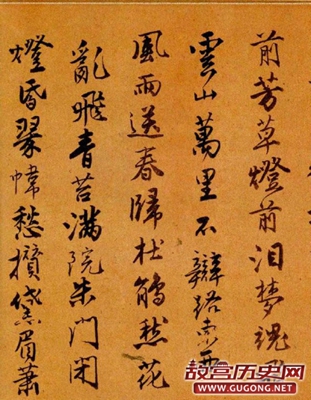 前芳草燈前淚夢魂
雲山萬里不辯路東西
風雨送春歸杜鵑愁花
亂飛青苔滿院朱門閉
燈昏翠幃愁攢黛眉蕭
故宫历史网
WWW.GUGONG.NET